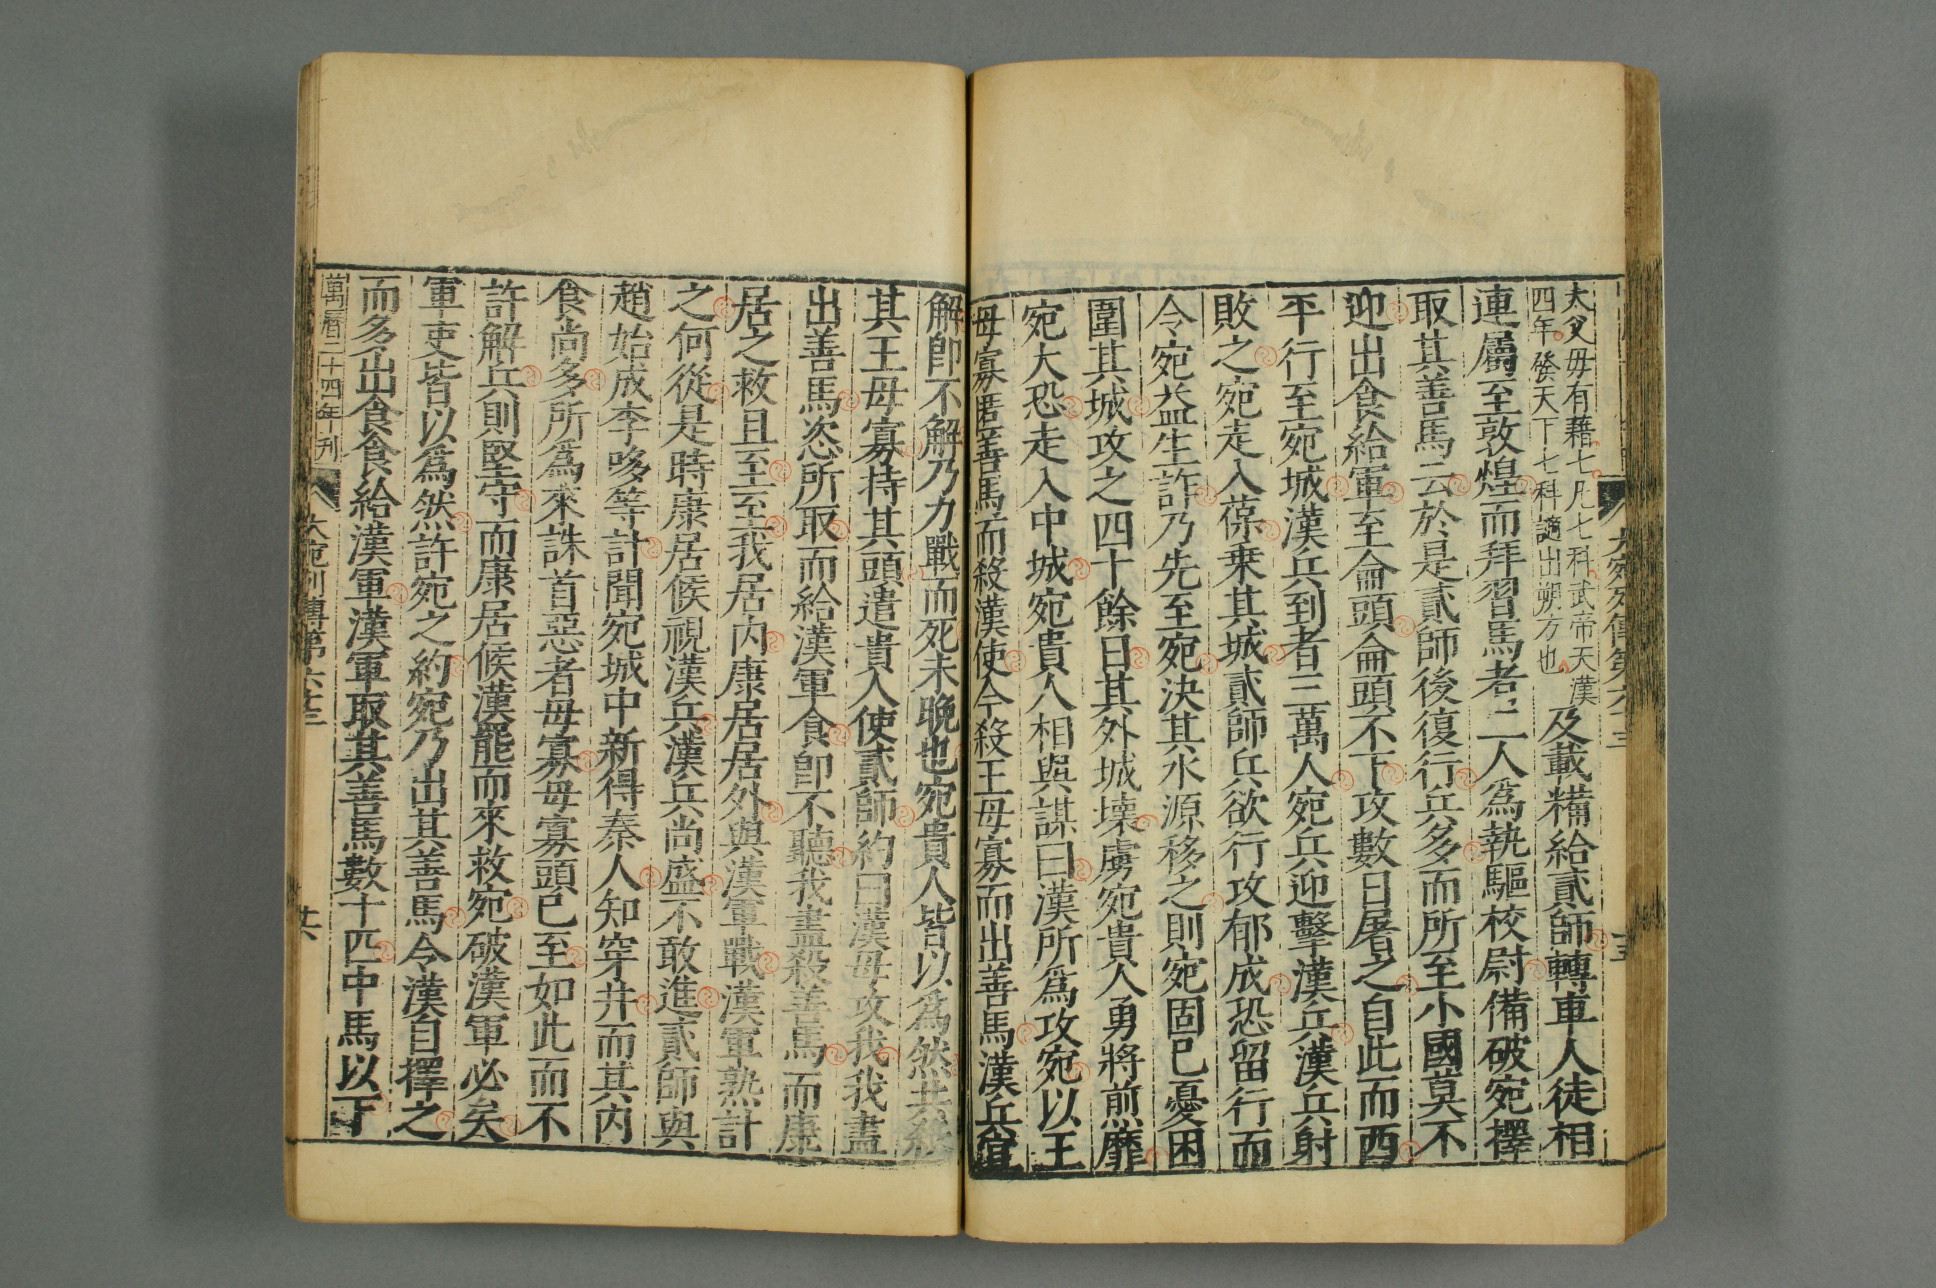 大父母有藉七凡七科武帝天漢
四年發天下七科讁出朔方也
及載糒給貳師轉車人徒相
連屬至敦煌而拜習馬者二人爲執驅校尉備破宛擇
取其善馬云於是貳師後復行兵多而所至小國莫不
迎出食給軍至侖頭侖頭不下攻數日屠之自此而西
平行至宛城漢兵到者三萬人宛兵迎擊漢兵漢兵射
敗之宛走入葆乗其城貳師兵欲行攻郁成恐留行而
令宛益生詐乃先至宛決其水源移之則宛固已憂困
圍其城攻之四十餘日其外城壞虜宛貴人勇將煎靡
宛大恐走入中城宛貴人相與謀曰漢所爲攻宛以王
毋寡匿善馬而殺漢使今殺王毋寡而出善馬漢兵宜
解卽不解乃力戰而死未晚也宛貴人皆以爲然共殺
其王毋寡持其頭遣貴人使貳師約曰漢毋攻我我盡
出善馬恣所取而給漢軍食卽不聽我盡殺善馬而康
居之救且至至我居内康居居外與漢軍戰漢軍熟計
之何從是時康居候視漢兵漢兵尚盛不敢進貳師與
趙始成李哆等計聞宛城中新得秦人知穿井而其内
食尚多所爲來誅首惡者毋寡毋寡頭已至如此而不
許解兵則堅守而康居候漢罷而來救宛破漢軍必矣
軍吏皆以爲然許宛之約宛乃出其善馬令漢自擇之
而多出食食給漢軍漢軍取其善馬數十匹中馬以下
萬曆二十四年刊
大宛列傳第六十三
廿六